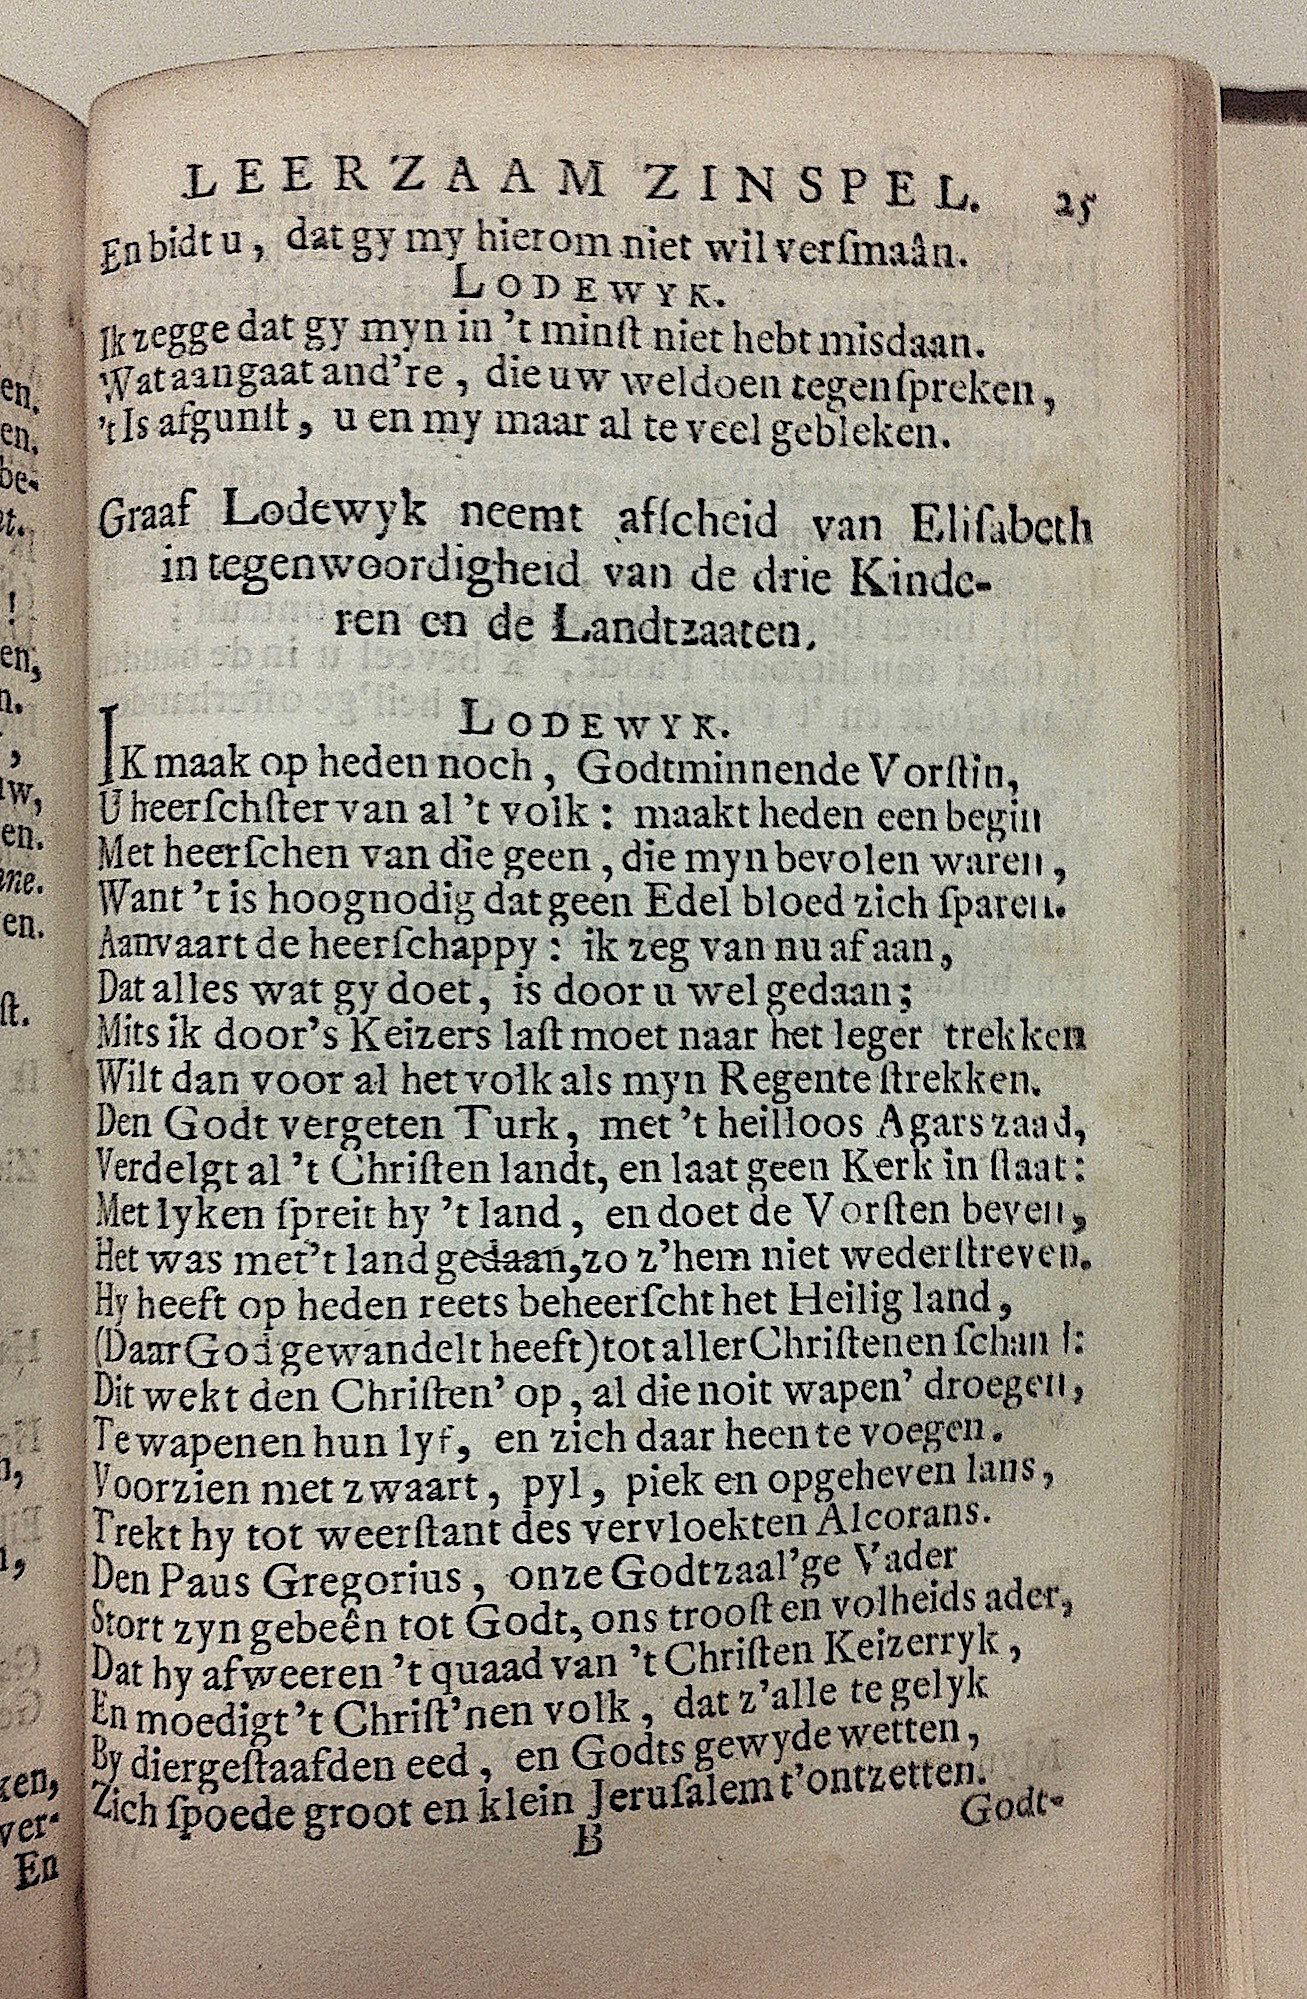 LEERZAAM ZINSPEL. 25
En bidt u, dat gy my hierom niet wil verſmaân.
LODEWYK.
Ik zegge dat gy myn in 't minſt niet hebt misdaan.
Wat aangaat and're, die uw weldoen tegenſpreken,
't Is afgunſt, u en my maar al te veel gebleken.
Graaf Lodewyk neemt afſcheid van Eliſabeth
in tegenwoordigheid van de drie Kinde-
ren en de Landtzaaten.
LODEWYK.
IK maak op heden noch, Godtminnende Vorſtin,
U heerſchſter van al 't volk: maakt heden een begin
Met heerſchen van die geen, die myn bevolen waren,
Want 't is hoognodig dat geen Edel bloed zich ſparen.
Aanvaart de heerſchappy: ik zeg van nu af aan,
Dat alles wat gy doet, is door u wel gedaan;
Mits ik door's Keizers laſt moet naar het leger trekken
Wilt dan voor al het volk als myn Regente ſtrekken.
Den Godt vergeten Turk, met 't heilloos Agars zaad,
Verdelgt al 't Chriſten landt, en laat geen Kerk in ſtaat:
Met lyken ſpreit hy 't land, en doet de Vorſten beven,
Het was met 't land gedaan, zo z'hem niet wederſtreven.
Hy heeft op heden reets beheerſcht het Heilig land,
(Daar God gewandelt heeft) tot aller Chriſtenen ſchand:
Dit wekt den Chriſten' op, al die noit wapen' droegen,
Te wapenen hun lyf, en zich daar heen te voegen.
Voorzien met zwaart, pyl, piek en opgeheven lans,
Trekt hy tot weerſtant des vervloekten Alcorans.
Den Paus Gregorius, onze Godtzaal'ge Vader
Stort zyn gebeên tot Godt, ons trooſt en volheids ader,
Dat hy afweeren 't quaad van 't Chriſten Keizerryk,
En moedigt 't Chriſt'nen volk, dat z'alle te gelyk
By diergeſtaafden eed, en Godts gewyde wetten,
Zich ſpoede groot en klein Jeruſalem t'ontzetten.
B Godt-